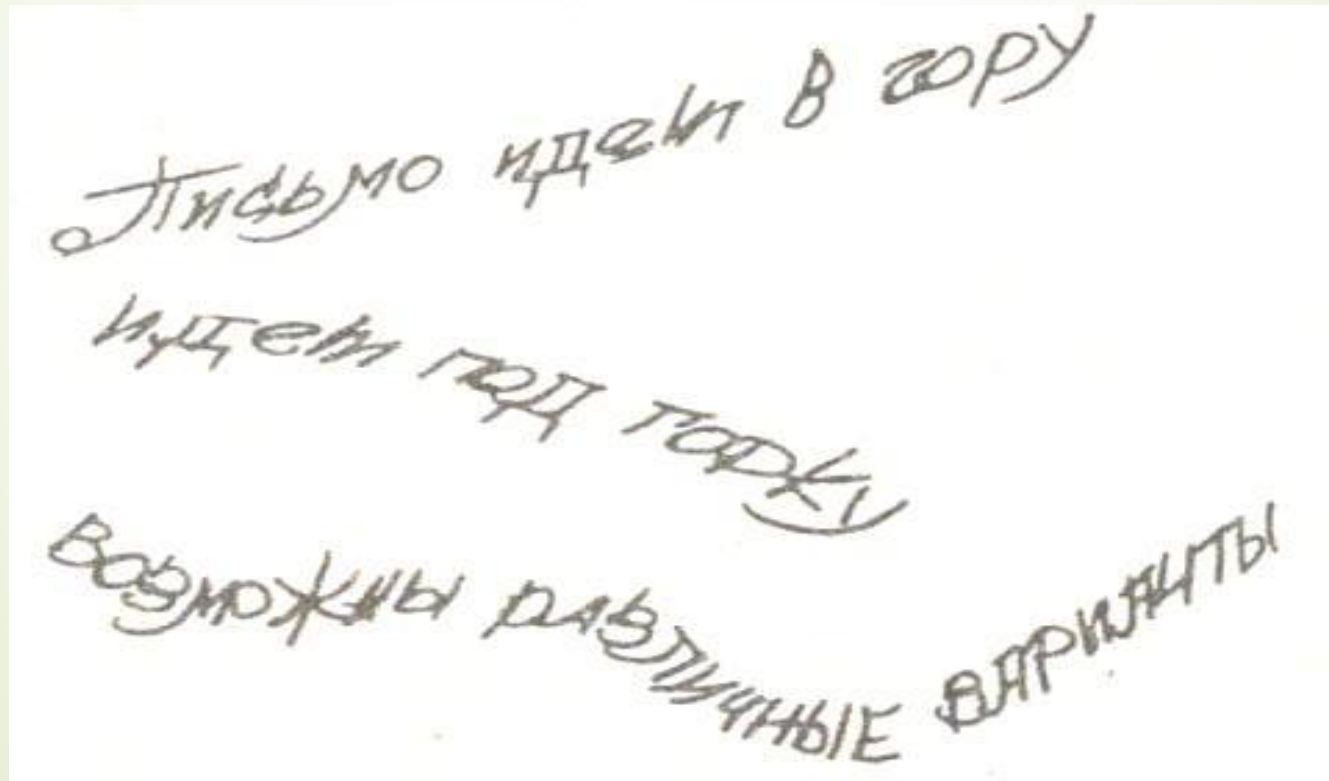 Письмо идет в гору
идет под горку
Возможны различные варианты